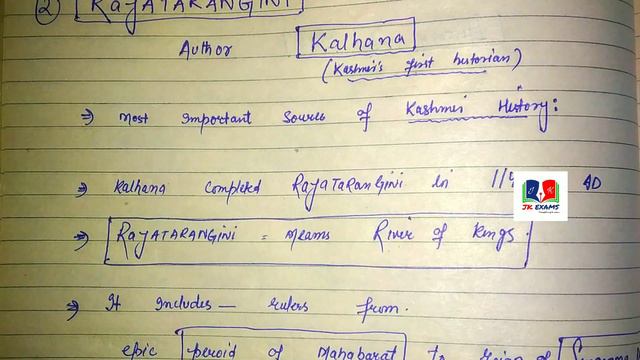 ② RAJATARANGINI
Author Kalhana
(Kashmir's first historian)
⇒ most important source of Kashmir History:
⇒ Kalhana completed RAJATARANGINI in 114 AD
JK EXAMS
⇒ RAJATARANGINI = means River of Kings.
⇒ It includes — rulers from.
epic peroid of Mahabarat to reign of